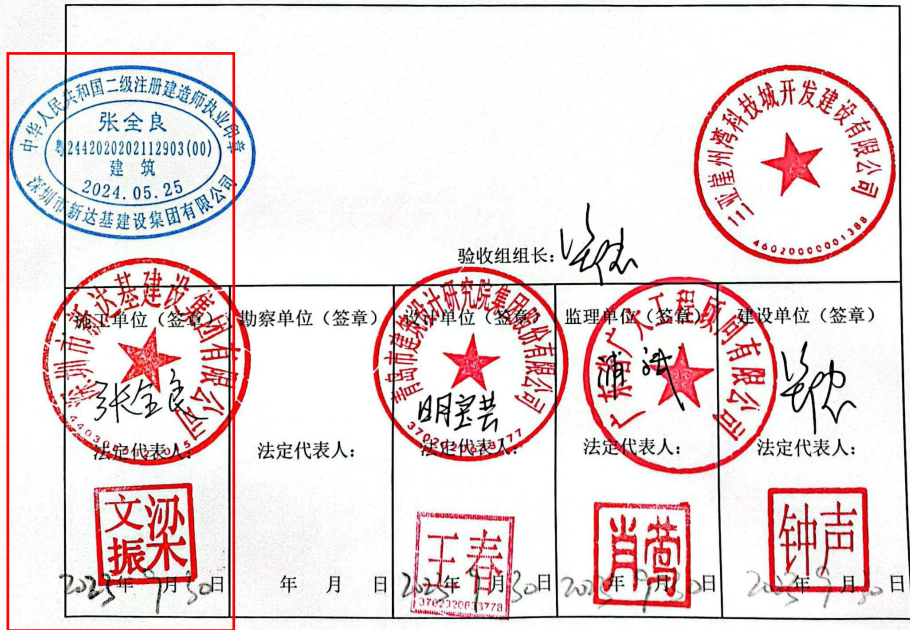 中华人民共和国二级注册建造师执业印章
张全良
粤2442020202112903(00)
建筑
2024.05.25
深圳市新达基建设集团有限公司
三亚崖州湾科技城开发建设有限公司
46020000001388
验收组组长:
施工单位（签章）
勘察单位（签章）
设计单位（签章）
监理单位（签章）
建设单位（签章）
深圳市新达基建设集团有限公司
青岛市建筑设计研究院集团股份有限公司
有限公司
张全良
法定代表人:
法定代表人:
法定代表人:
法定代表人:
法定代表人:
梁文振
王春
3702320633778
肖莺
钟声
2023年9月30日
年 月 日
2023年9月30日
2023年9月30日
2023年9月30日